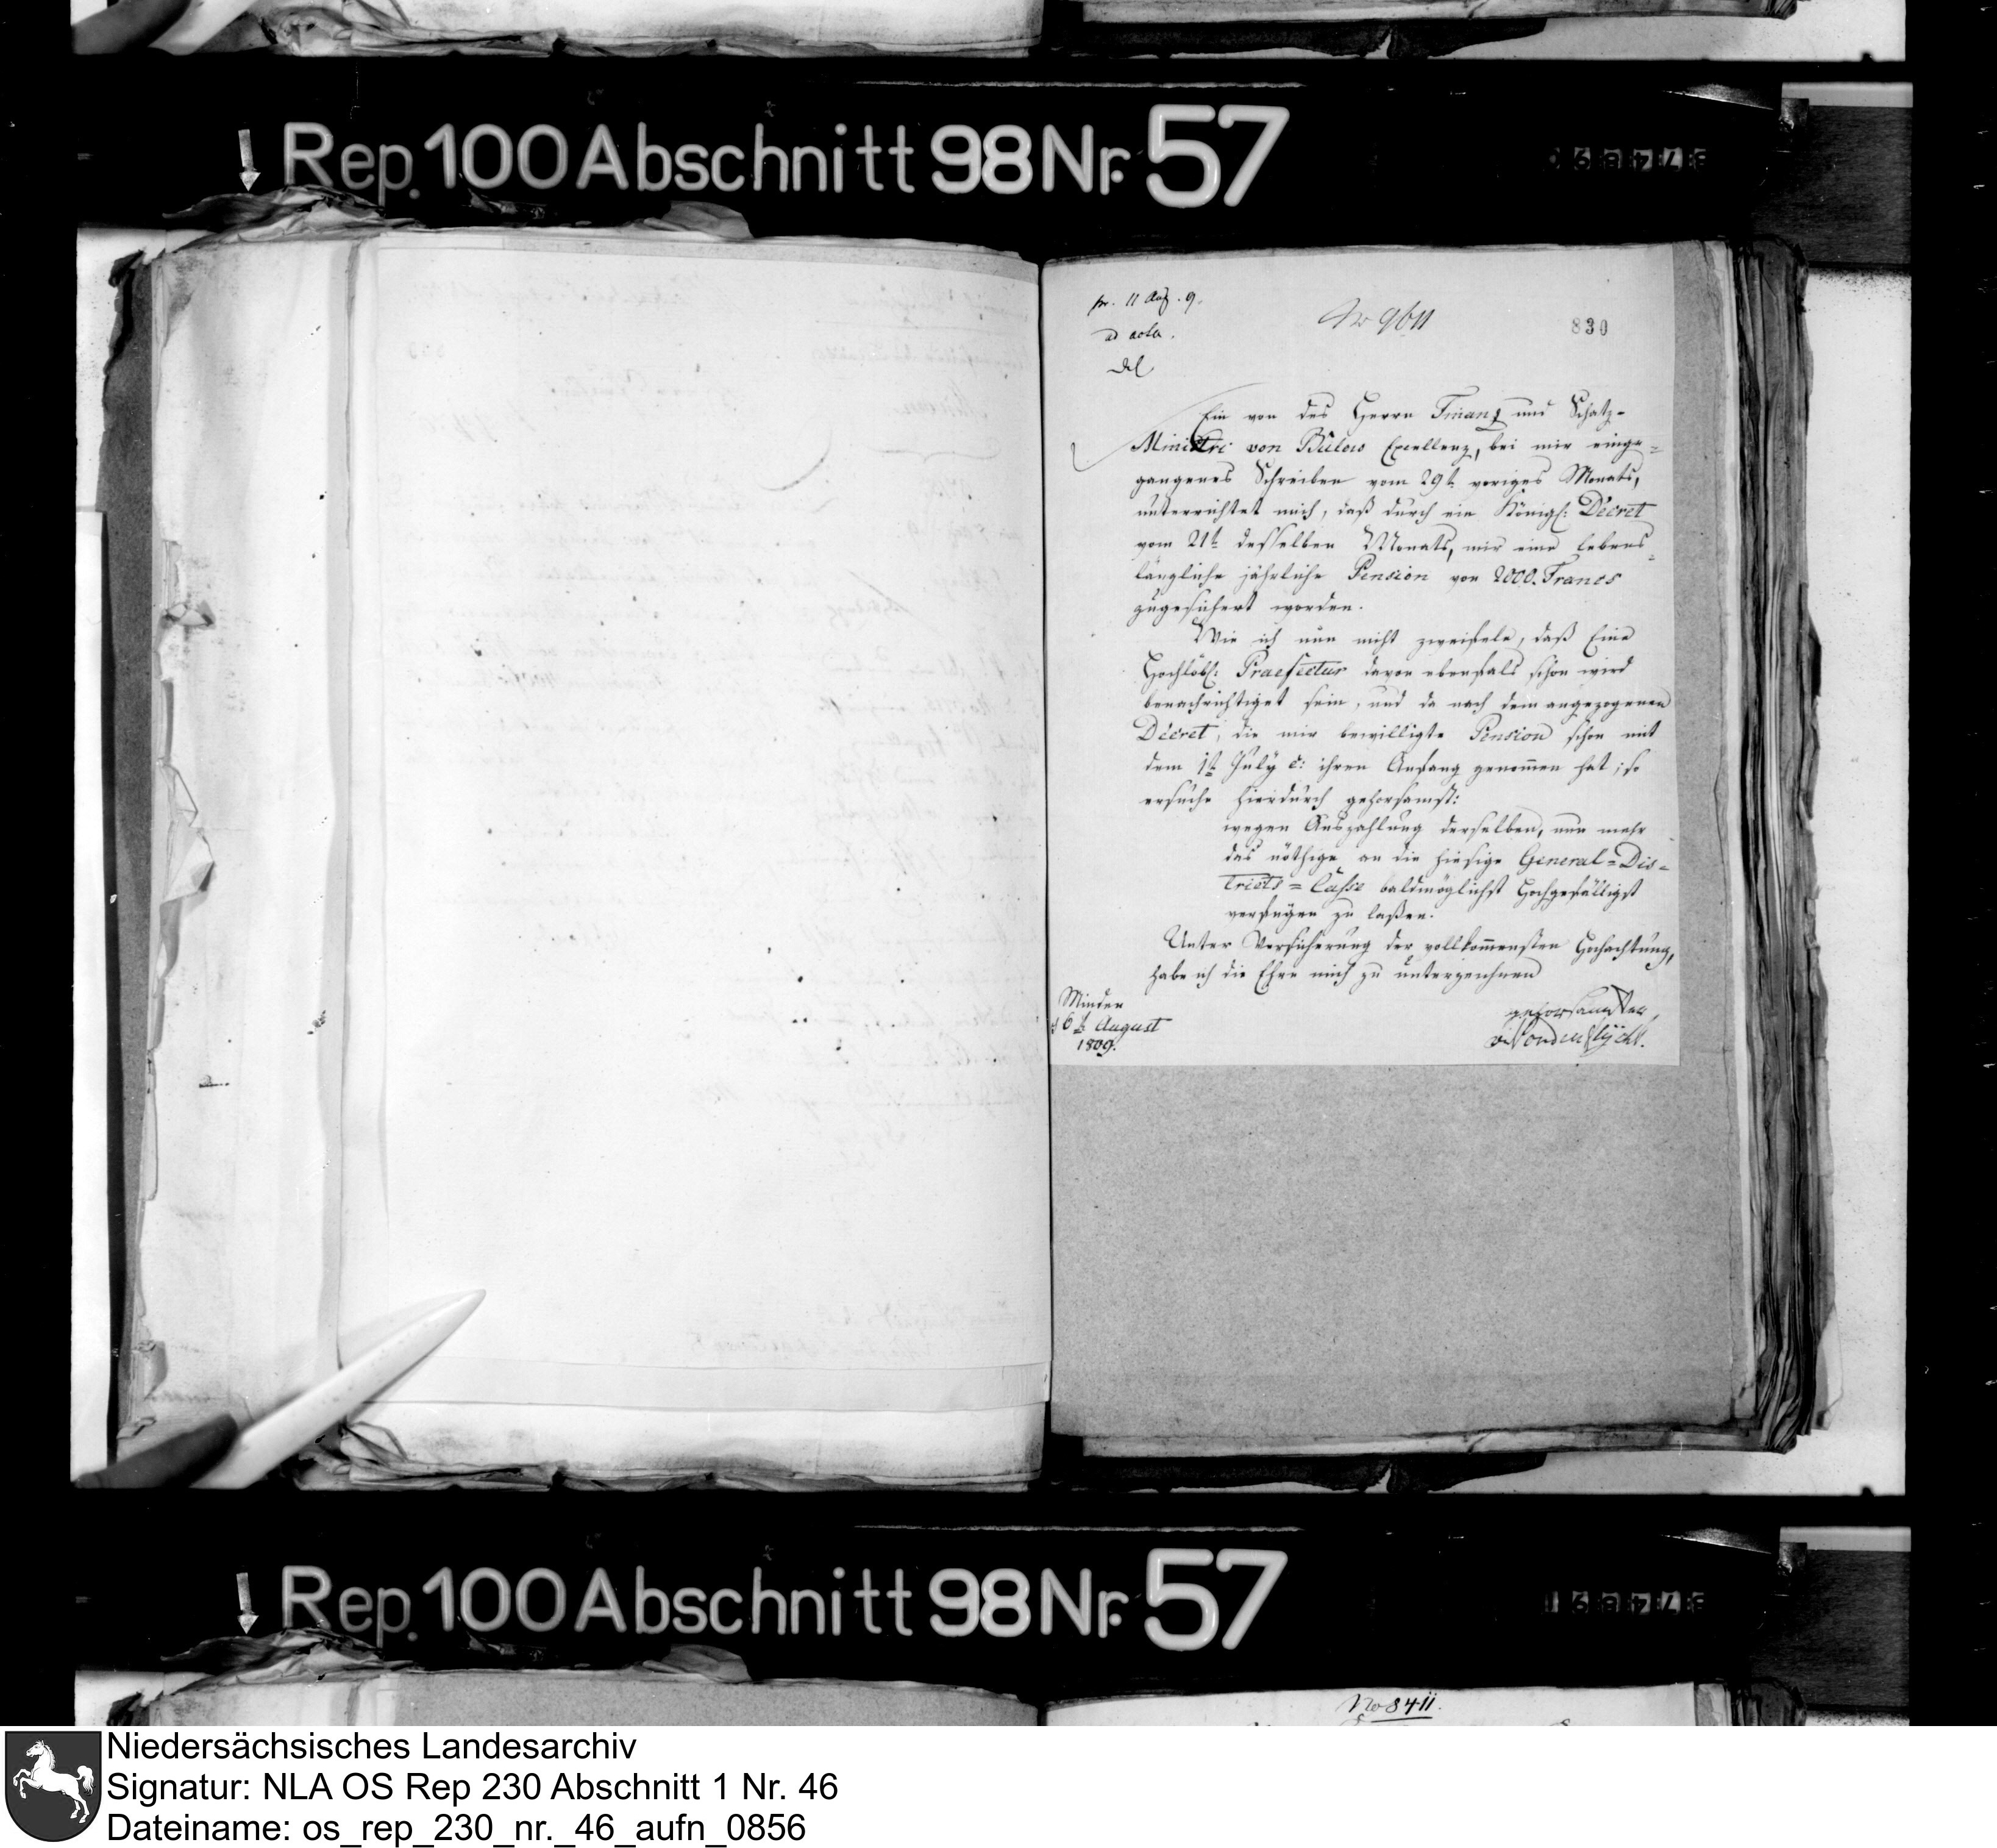 Rep. 100 Abschnitt 98 Nr. 57
pr. 11 Aug. 9.
ad acta.
No 9611
830
Ein von des Herrn Finanz und Schatz-
Ministri von Bülow Excellenz, bei mir einge=
gangenes Schreiben vom 29t. voriges Monats,
unterrichtet mich, daß durch ein Königl: Décret
vom 21t. desselben Monats, mir eine lebens=
längliche jährliche Pension von 2000. Francs
zugesichert worden.
Wie ich nun nicht zweifele, daß Eine
Hochlöbl: Praefectur davon ebenfals schon wird
benachrichtiget sein, und da nach dem angezogenen
Décret, die mir bewilligte Pension schon mit
dem 1t. July c: ihren Anfang genommen hat; so
ersuche hierdurch gehorsamst:
wegen Auszahlung derselben, nun mehr
das nöthige an die hiesige General=Dis=
tricts=Casse baldmöglichst Hochgefälligst
verfügen zu laßen.
Unter Versicherung der vollkommensten Hochachtung,
habe ich die Ehre mich zu unterzeichnen
Minden
d 6t. August
1809.
gehorsamster,
Rep. 100 Abschnitt 98 Nr. 57
No 8411.
Niedersächsisches Landesarchiv
Signatur: NLA OS Rep 230 Abschnitt 1 Nr. 46
Dateiname: os_rep_230_nr._46_aufn_0856